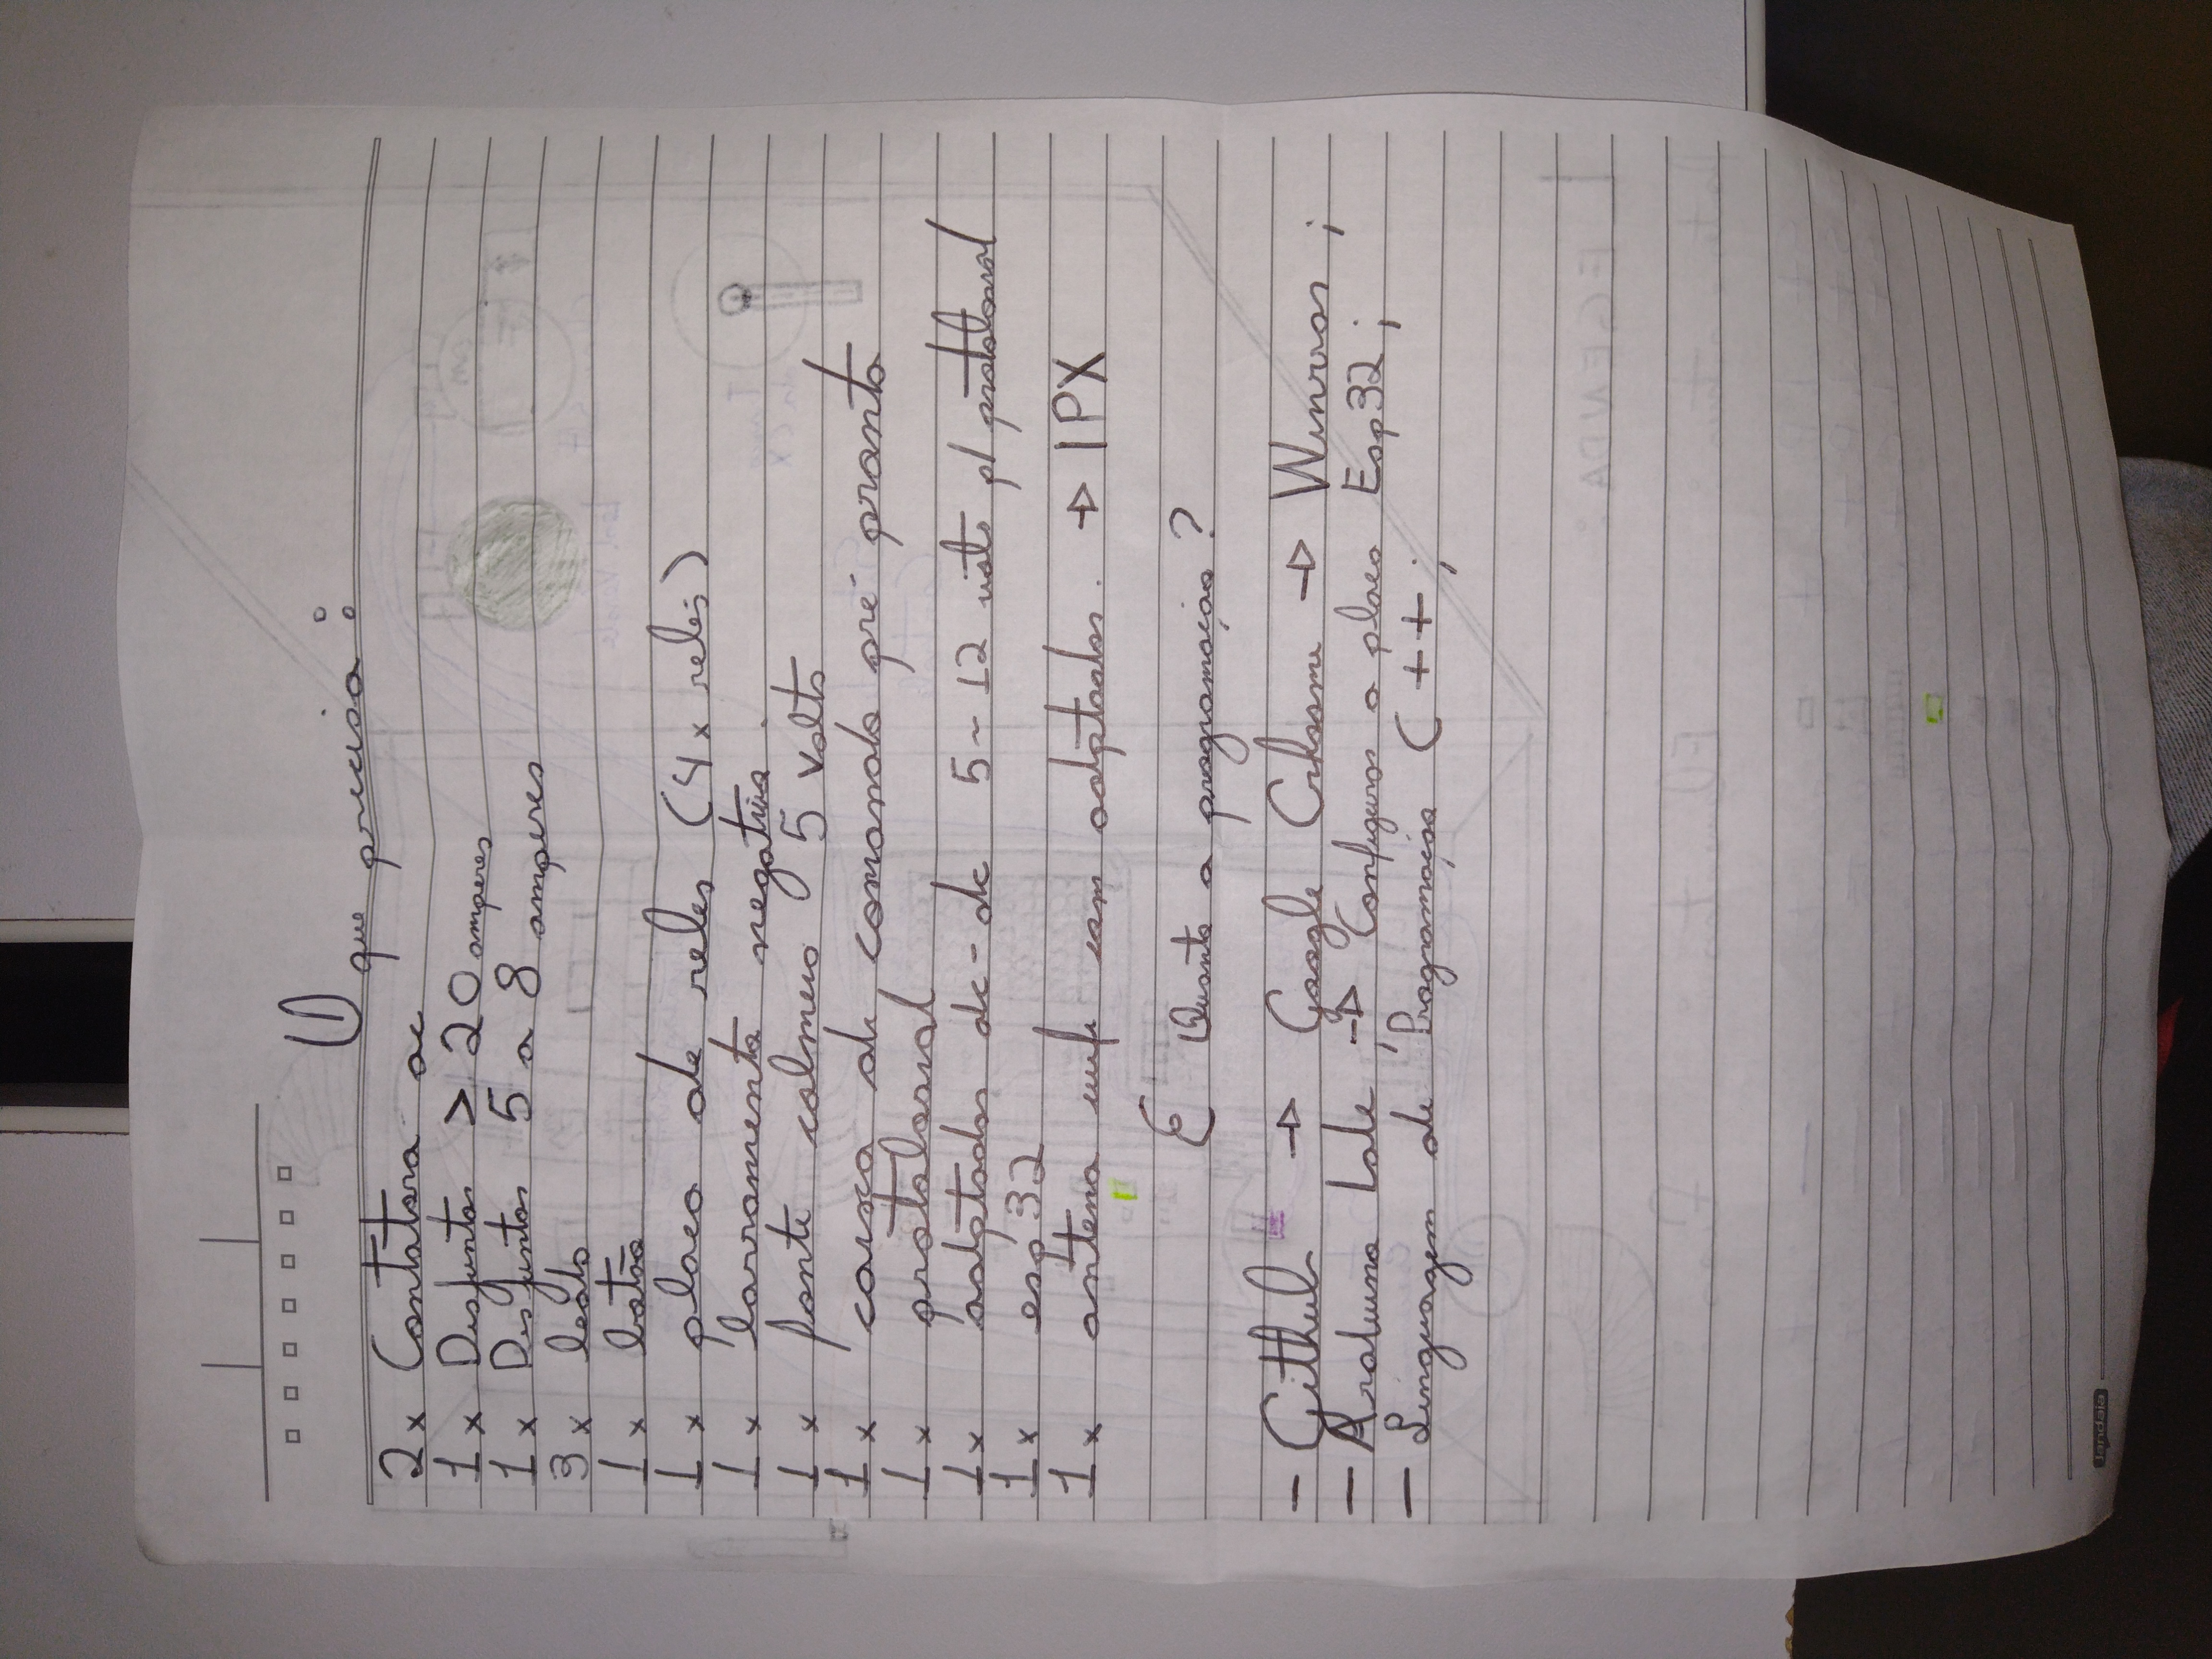 O que preciso:
2x Contatora ac
1x Disjuntor > 20 amperes
1x Disjuntor 5 a 8 amperes
3x leds
1x botão
1x placa de reles (4x relés)
1x barramento negativo
1x fonte colmeia 5 volts
1x caixa de comando pré pronta
1x protoboard
1x adaptador dc-dc 5~12 volts p/ protoboard
1x esp 32
1x antena wifi sem adptador. → IPX
E Quanto a programação?
- Github → Google Crhome → Winrar;
- Arduino Ide → Configurar a placa Esp32;
- Linguagem de Programação C++;
jandaia